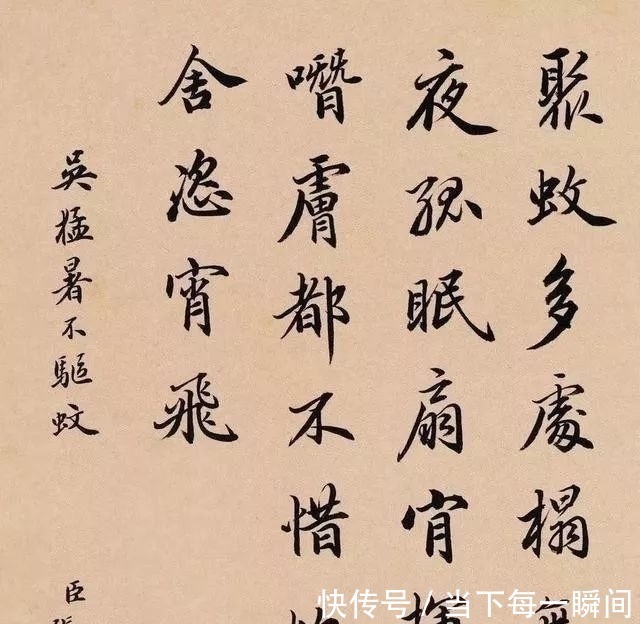 聚蚊多處榻
夜孤眠扇肯
噆膚都不惜
舍恣宵飛
吳猛暑不驅蚊
臣
快传号 / 当下每一瞬间